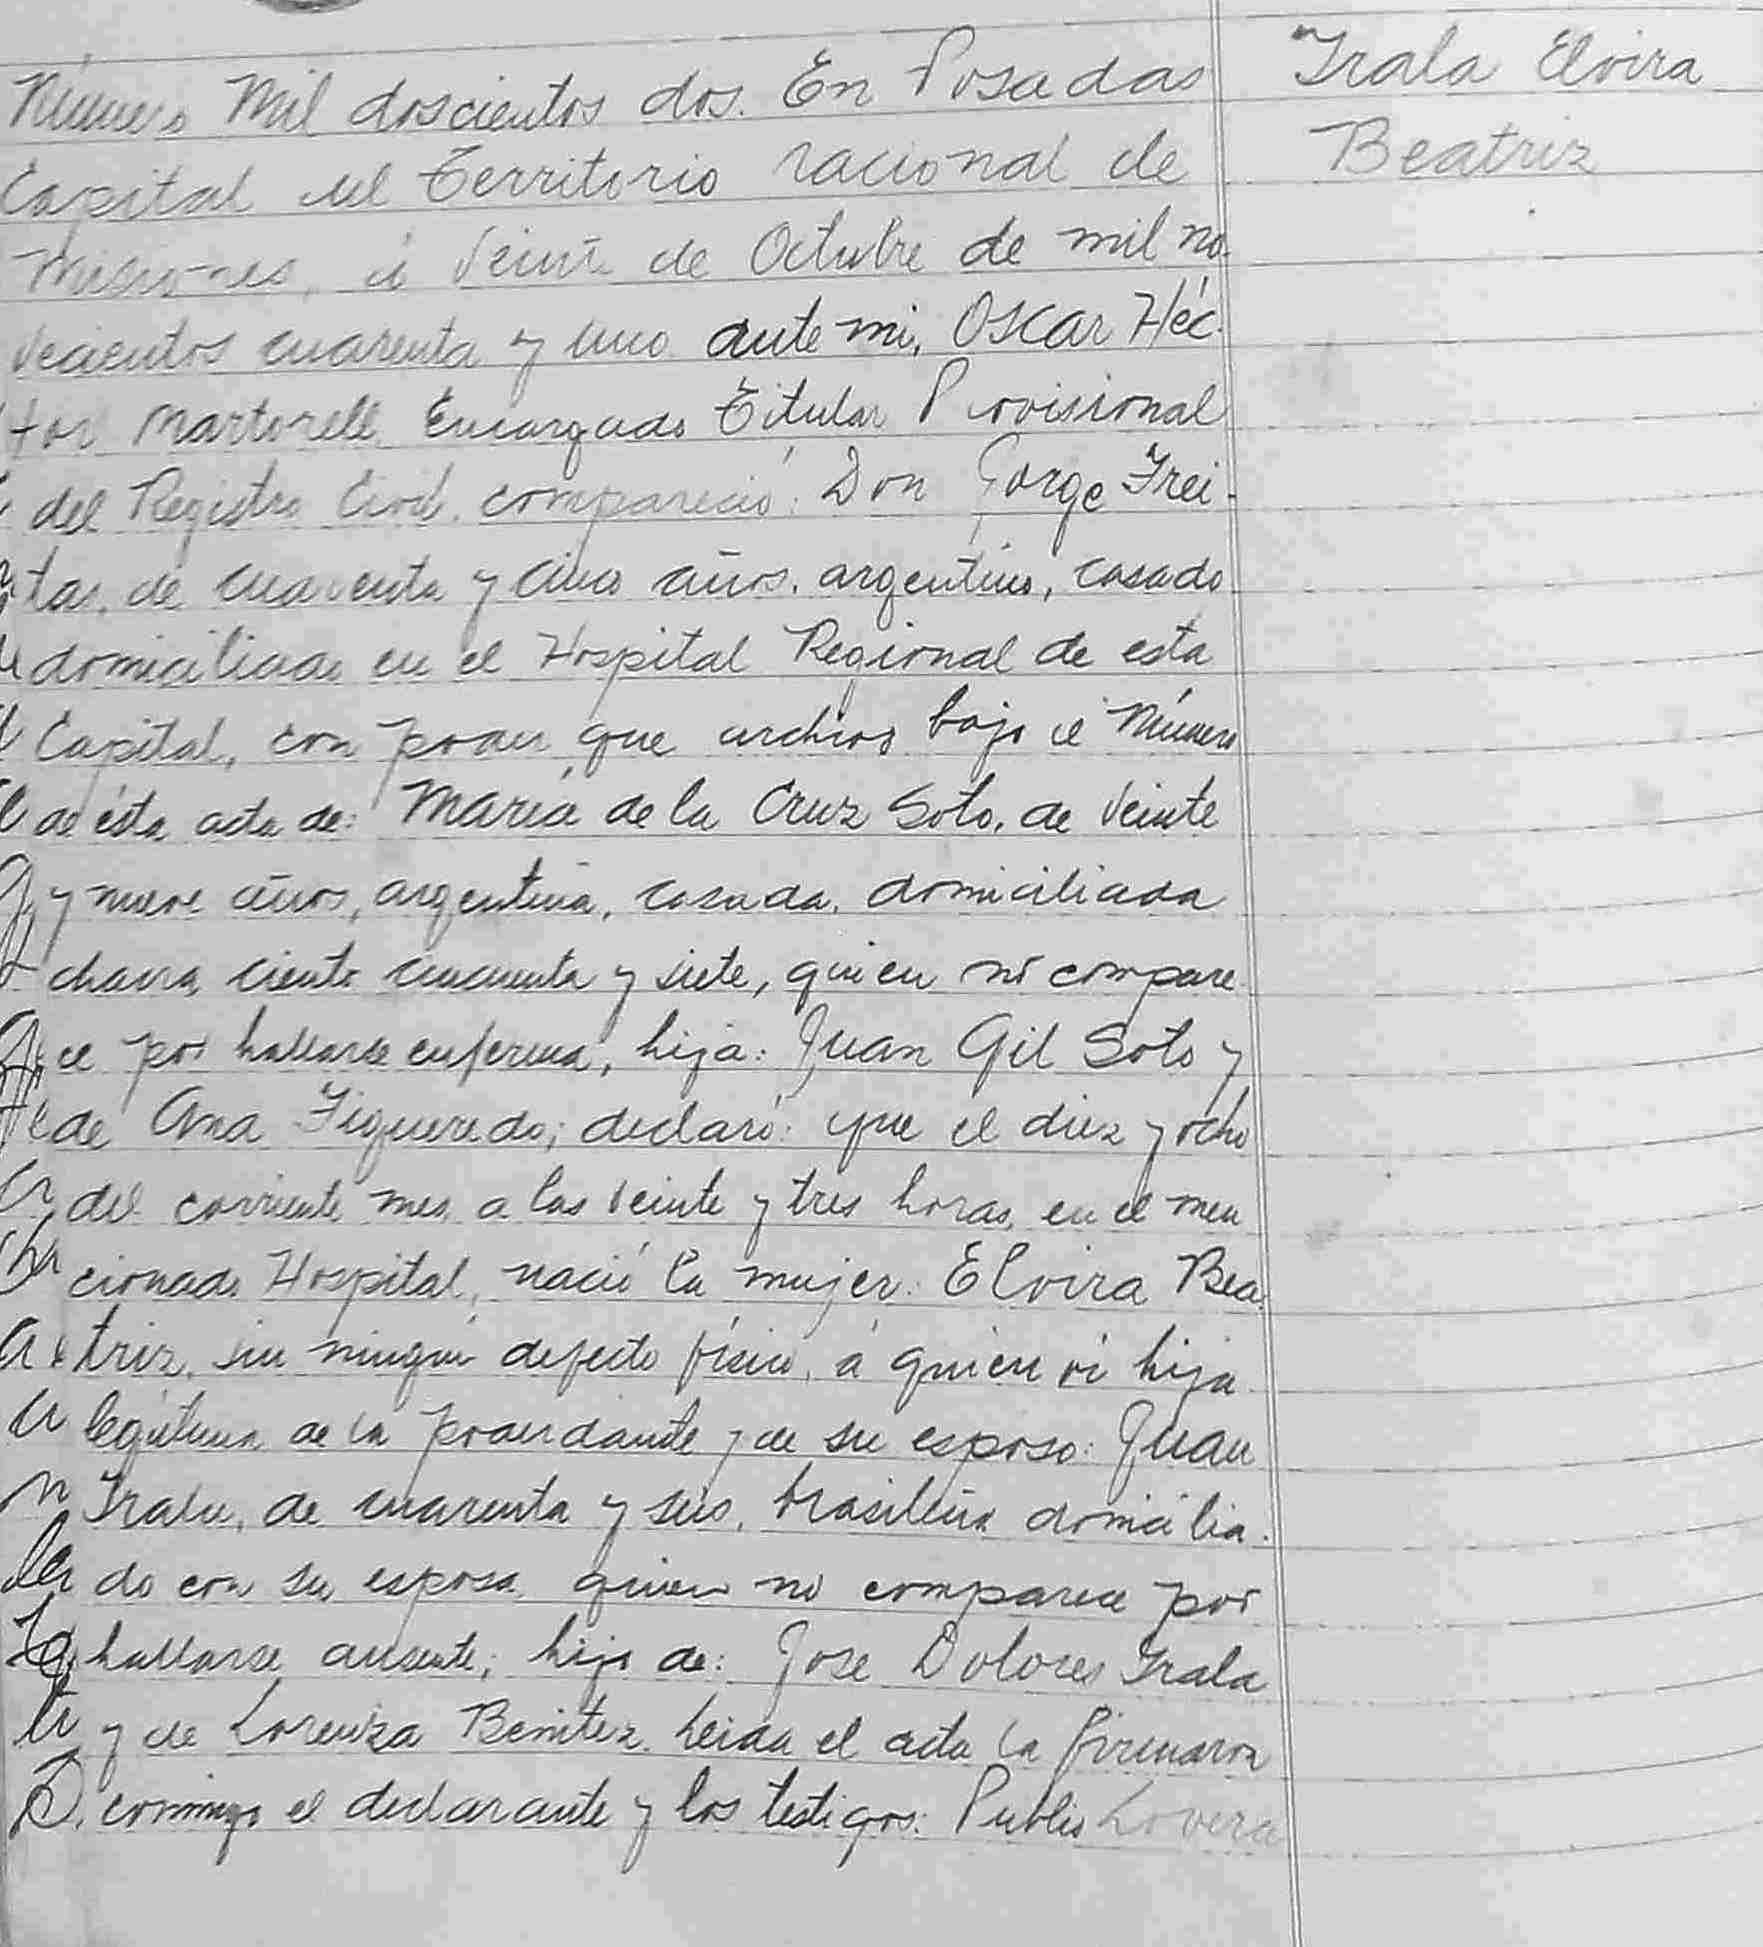 Irala Elvira
Beatriz
Número Mil doscientos dos. En Posadas
Capital del Territorio nacional de
Misiones, á veinte de Octubre de mil no-
vecientos cuarenta y uno ante mi, Oscar Héc-
tor Martorell Encargado Titular Provisional
del Registro Civil, compareció: Don Jorge Frei-
tas, de cuarenta y cinco años, argentino, casado
domiciliado en el Hospital Regional de esta
Capital, con poder que archivo bajo el Número
de ésta acta de: María de la Cruz Soto, de veinte
y nueve años, argentina, casada, domiciliada
chacra ciento cincuenta y siete, quien no compare
ce por hallarse enferma, hija: Juan Gil Soto y
de Ana Figueredo; declaró: que el diez y ocho
del corriente mes, a las veinte y tres horas, en el men
cionado Hospital, nació la mujer: Elvira Bea-
triz, sin ningún defecto físico, á quien vi hija
legítima de la poderdante y de su esposo: Juan
Irala, de cuarenta y seis, brasileño domicilia-
do con su esposa, quien no comparece por
hallarse ausente; hijo de: Jose Dolores Irala
y de Lorenza Benitez. Leida el acta la firmaron
conmigo el declarante y los testigos: Publio Lovera